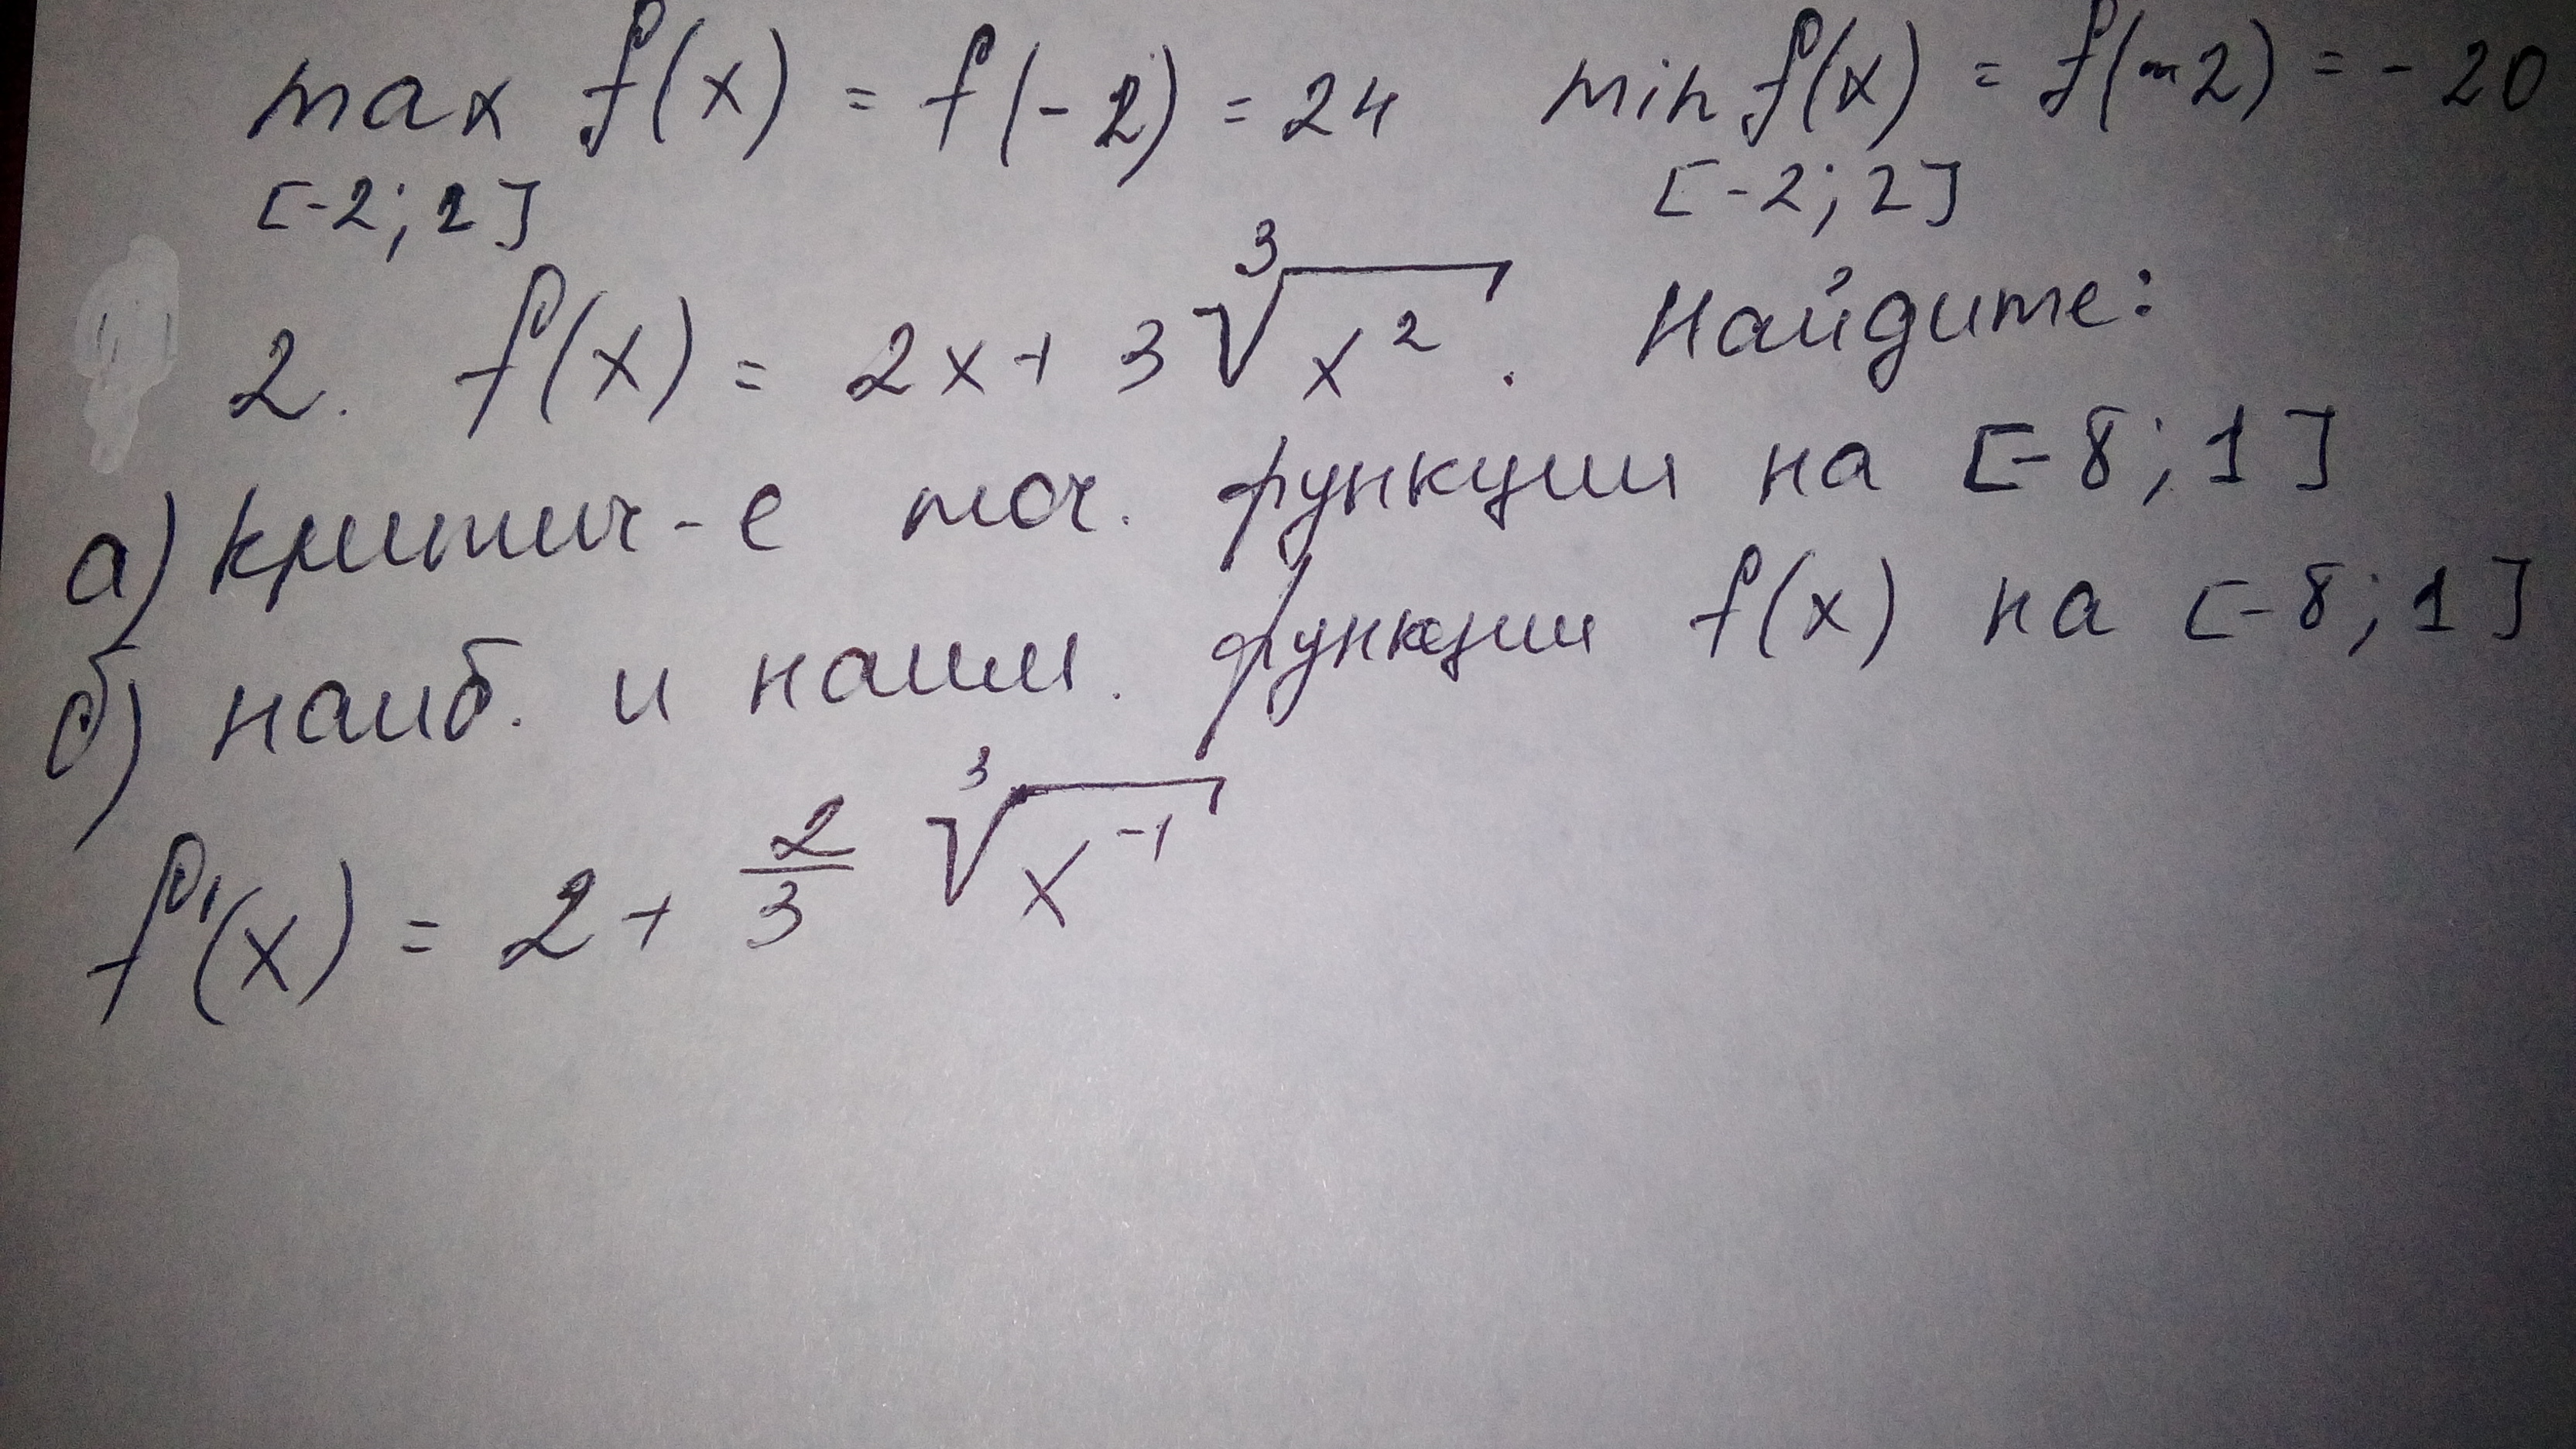 max f(x) = f(-2) = 24 min f(x) = f(-2) = - 20
[-2; 2] [-2; 2]
2. f(x) = 2x + 3∛x². Найдите:
а) критич-е точ. функции на [-8; 1]
б) наиб. и наим. функции f(x) на [-8; 1]
f'(x) = 2 + 2/3 ∛x⁻¹